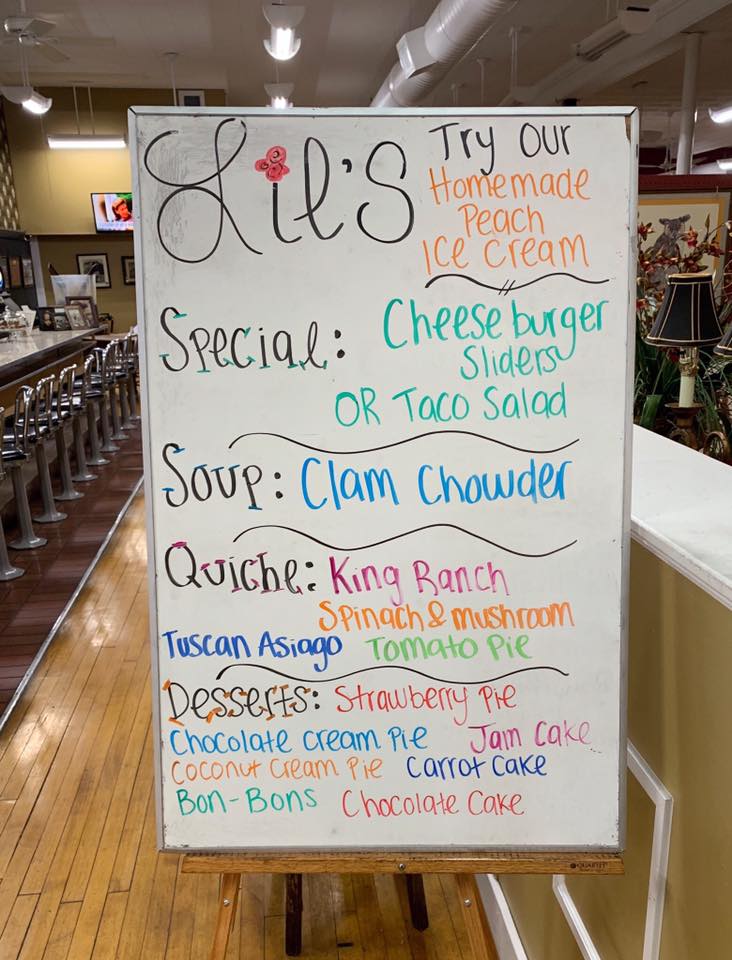 Lil's
Try Our
Homemade
Peach
Ice Cream
Special: Cheeseburger
Sliders
OR Taco Salad
Soup: Clam Chowder
Quiche: King Ranch
Spinach & mushroom
Tuscan Asiago Tomato Pie
Desserts: Strawberry Pie
Chocolate Cream Pie Jam Cake
Coconut Cream Pie Carrot Cake
Bon-Bons Chocolate Cake
QUARTET